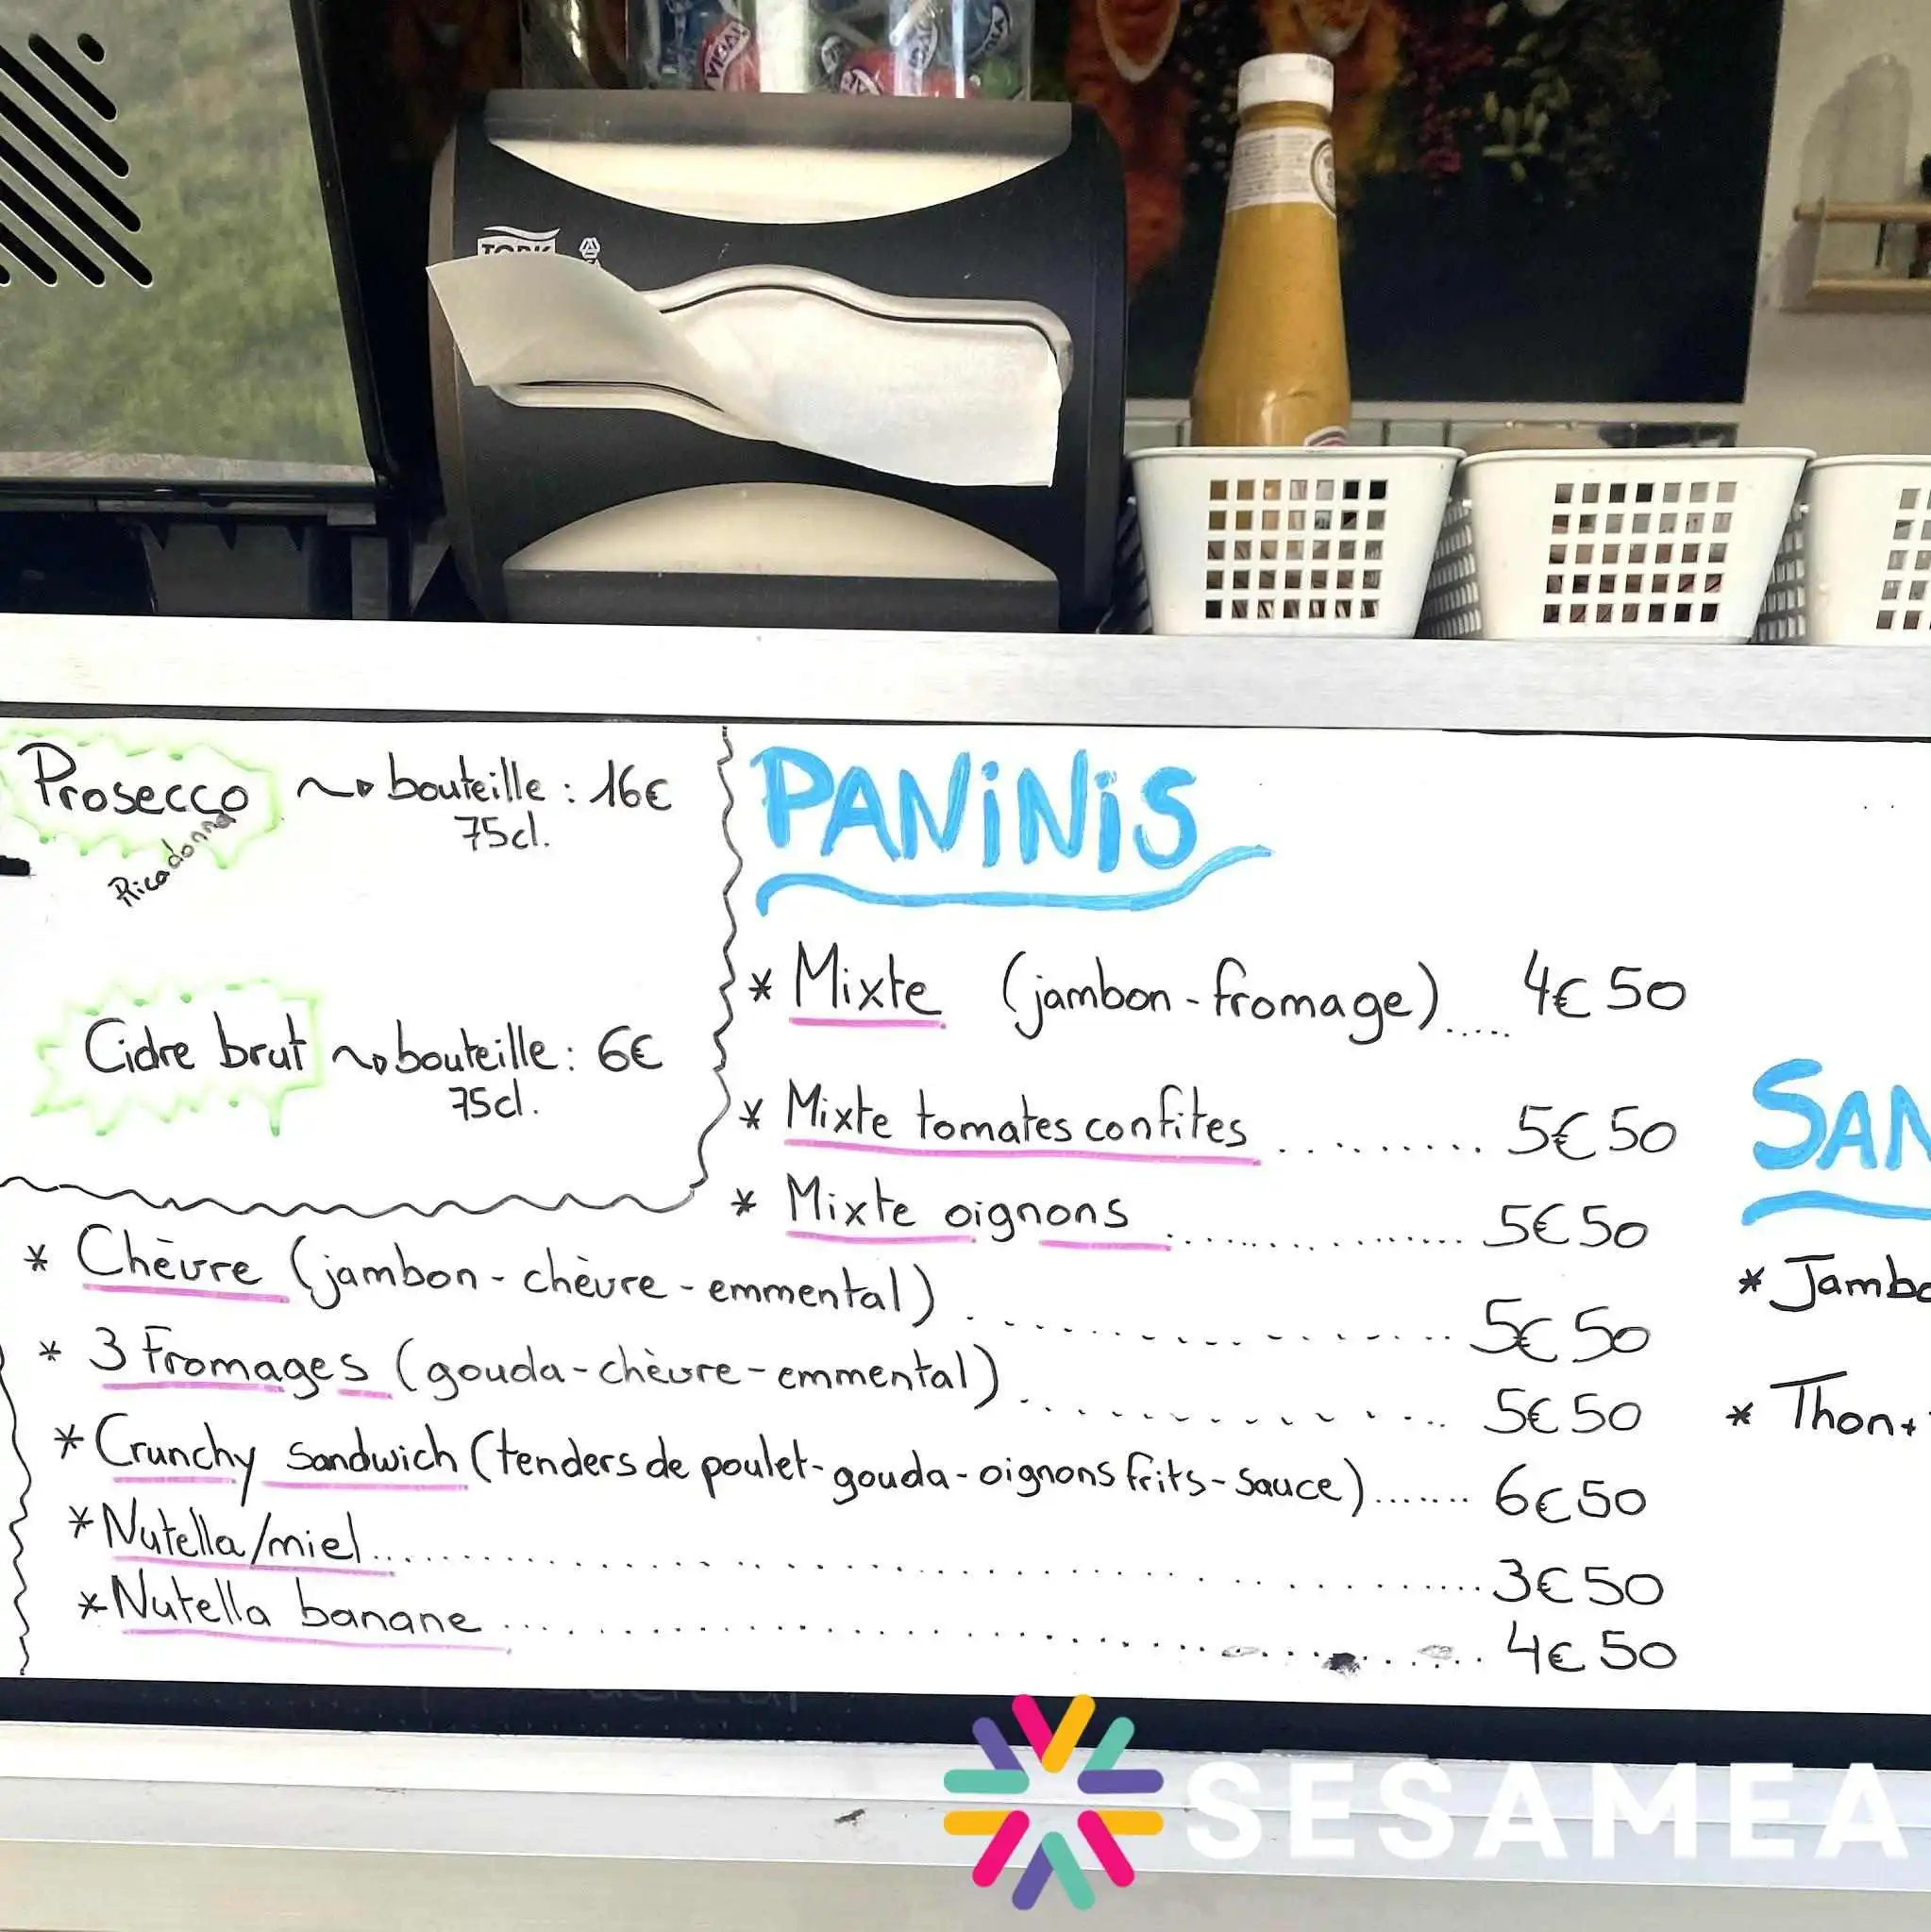 TORK
Prosecco ~> bouteille : 16€
75cl.
Ricadonna
Cidre brut ~> bouteille : 6€
75cl.
PANiNiS
* Mixte (jambon - fromage)..... 4€50
* Mixte tomates confites .......... 5€50
* Mixte oignons ................. 5€50
* Chèvre (jambon - chèvre - emmental) ................. 5€50
* 3 Fromages (gouda - chèvre - emmental) ................. 5€50
* Crunchy Sandwich (tenders de poulet - gouda - oignons frits - sauce)....... 6€50
* Nutella/miel ................. 3€50
* Nutella banane ................. 4€50
SAN
* Jambo
* Thon+
SESAMEA